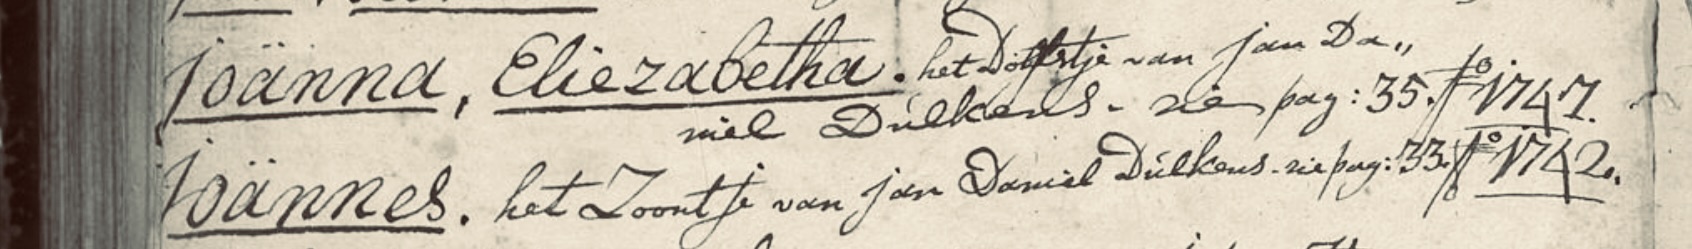 Joänna, Eliezabetha. het Dogterstje van Jan Da„
niel Dúlkens - zie pag: 35. fo 1747.
Joännes. het Zoontje van Jan Daniel Dúlkens - zie pag: 33. fo 1742.